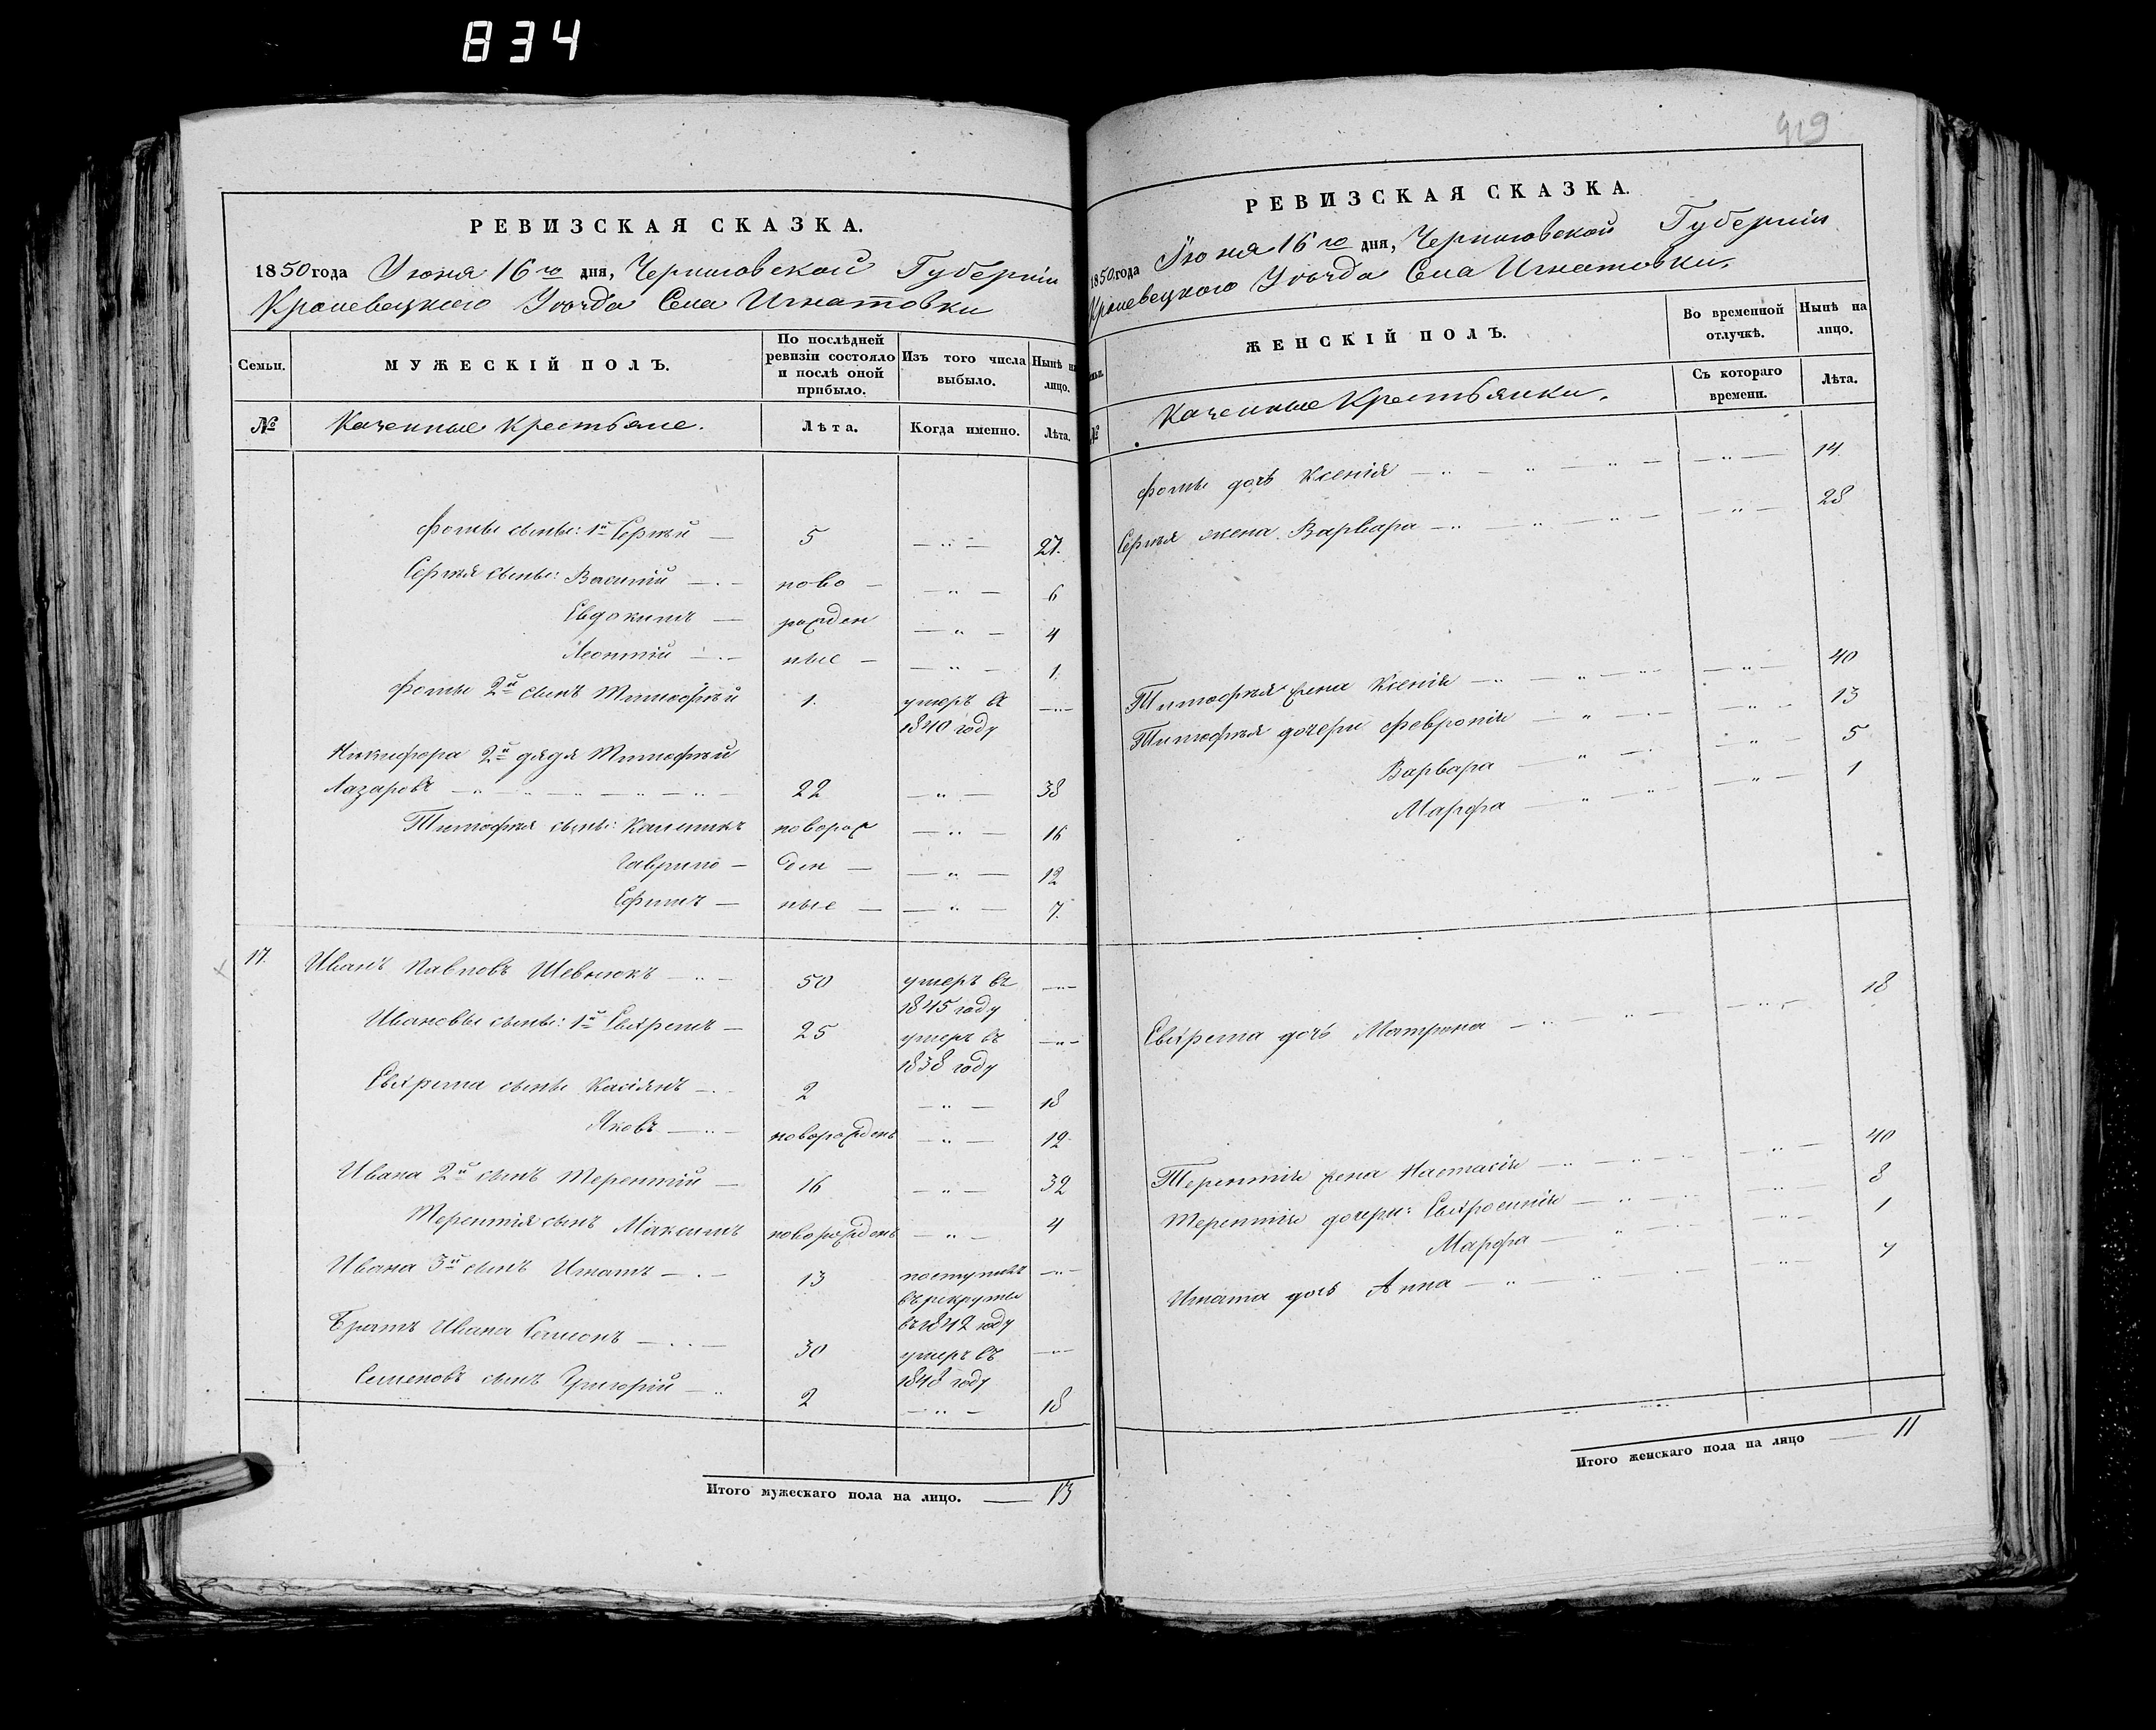 834
РЕВИЗСКАЯ СКАЗКА.
1850 года Июня 16го дня, Черниговской Губерніи
Кролевецкого Уѣзда Села Игнатовки
Семьи.
МУЖЕСКІЙ ПОЛЪ.
По послѣдней ревизіи состояло и послѣ оной прибыло.
Изъ того числа выбыло.
Нынѣ на лицо.
№ Казенные Крестьяне. Лѣта. Когда именно. Лѣта.
Фомы сыны: 1й Сергѣй — 5 — 〃 — 27.
Сергѣя сыны: Василій — ново — — 〃 — 6
Евдокимъ — рожден — 〃 — 4
Леонтій — ные — — 〃 — 1.
Фомы 2й сынъ Тимофѣй 1. умеръ въ — 〃 —
1840 году
Никифора 2й дядя Тимофѣй
Лазаровъ — 22 — 〃 — 38
Тимофѣя сыны: Калиникъ поворож — 〃 — 16
Гаврило — ден — — 〃 — 12
Ефимъ — ные — — 〃 — 7.
17. Иванъ Павловъ Шевлюкъ — 50 умеръ въ — 〃 —
1845 году
Ивановы сыны: 1й Евфремъ — 25 умеръ въ — 〃 —
1838 году
Евфрема сыны Касіянъ — 2 — 〃 — 18
Яковъ — новорожденъ — 〃 — 12
Ивана 2й сынъ Терентій — 16 — 〃 — 32
Терентія сынъ Максимъ новорожденъ — 〃 — 4
Ивана 3й сынъ Игнатъ — 13 поступилъ — 〃 —
въ рекруты
въ 1842 году
Братъ Ивана Семионъ — 30 умеръ въ — 〃 —
1848 году
Семеновъ сынъ Григорій — 2 — 〃 — 18
Итого мужескаго пола на лицо. — 13
419
РЕВИЗСКАЯ СКАЗКА.
1850 года Июня 16го дня, Черниговской Губерніи
Кролевецкого Уѣзда Села Игнатовки.
Семьи.
ЖЕНСКІЙ ПОЛЪ.
Во временной отлучкѣ.
Нынѣ на лицо.
Съ котораго времени.
Лѣта.
№ Казенные Крестьянки.
Фомы дочь Ксенія — 〃 — 14.
Сергѣя жена Варвара — 〃 — 28
Тимофѣя жена Ксенія — 〃 — 40
Тимофѣя дочери Февронія — 〃 — 13
Варвара — 〃 — 5
Марфа — 〃 — 1
Евфрема дочь Матрона — 〃 — 18
Терентія жена Настасія — 〃 — 40
Терентія дочери: Евфросинія — 〃 — 8
Марфа — 〃 — 1
Игната дочь Анна — 〃 — 7
Итого женскаго пола на лицо — 11